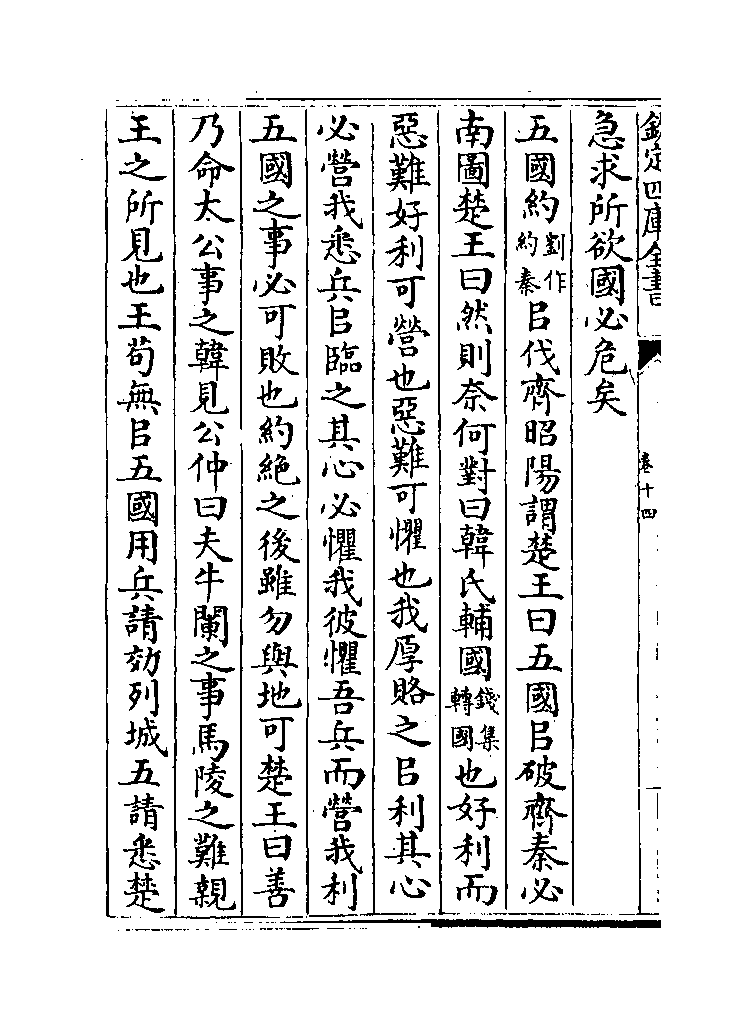 欽定四庫全書
卷十四
急求所欲國必危矣
五國約劉作約秦㠯伐齊昭陽謂楚王曰五國㠯破齊秦必
南圖楚王曰然則奈何對曰韓氏輔國錢集轉國也好利而
惡難好利可營也惡難可懼也我厚賂之㠯利其心
必營我悉兵㠯臨之其心必懼我彼懼吾兵而營我利
五國之事必可敗也約絶之後雖勿與地可楚王曰善
乃命太公事之韓見公仲曰夫牛闌之事馬陵之難親
王之所見也王苟無㠯五國用兵請効列城五請悉楚